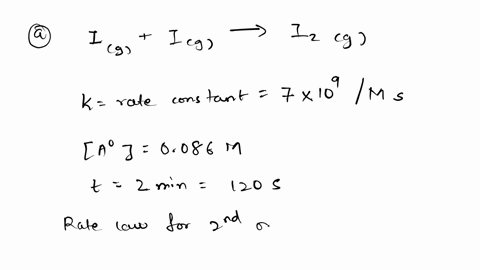 ⓐ I(g) + I(g) ⟶ I₂ (g)
K = rate constant = 7 × 10⁹ /M s
[A⁰] = 0.086 M
t = 2 min = 120 s
Rate law for 2nd o